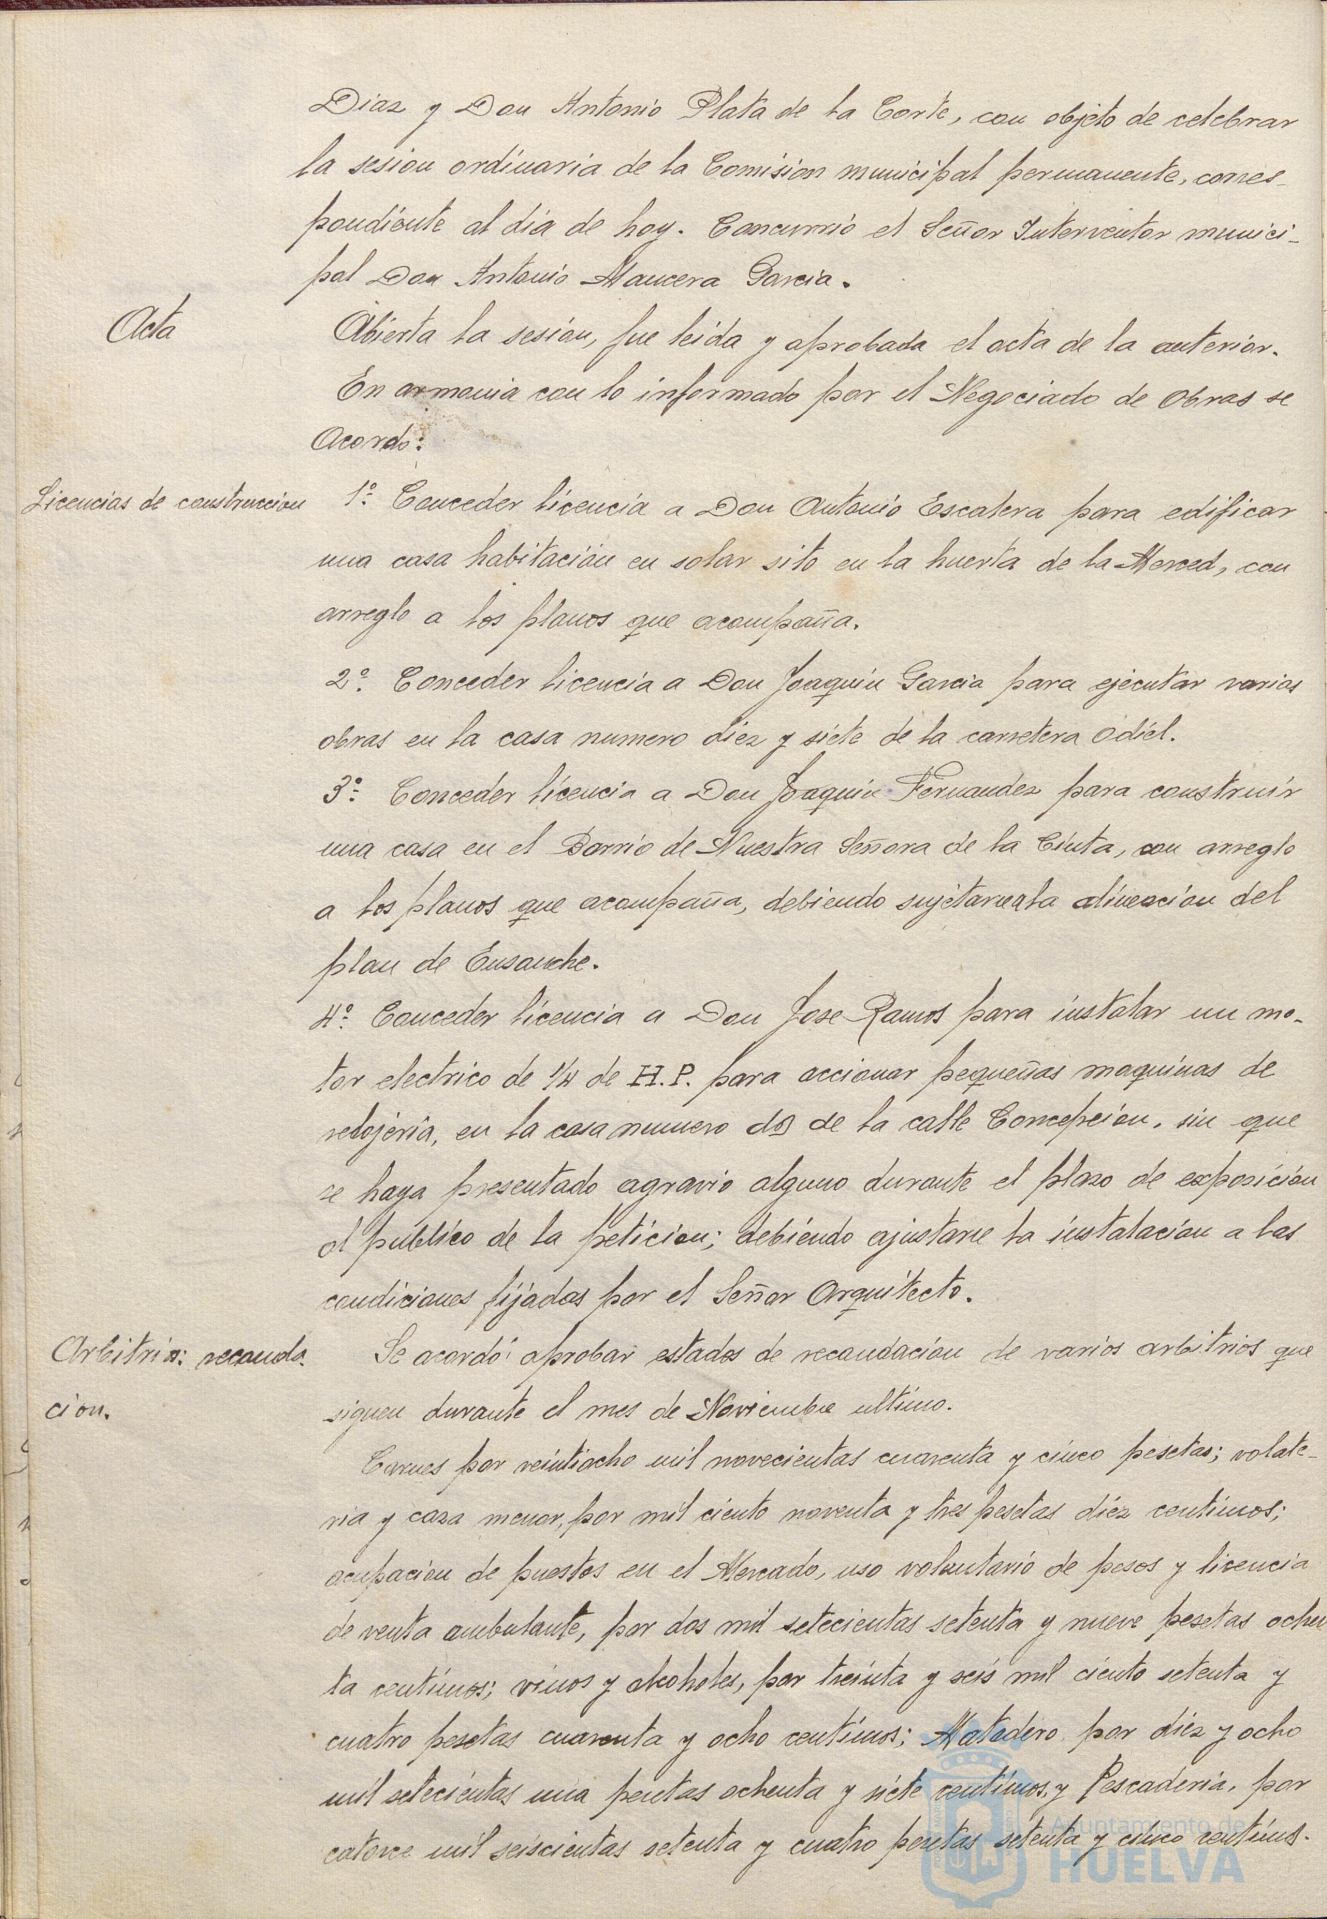 Diaz y Don Antonio Plata de la Corte, con objeto de celebrar
la sesion ordinaria de la Comision municipal permanente, corres-
pondiente al dia de hoy. Concurrió el Señor Interventor munici-
pal Don Antonio Mancera Garcia.
Acta
Abierta la sesión, fue leida y aprobada el acta de la anterior.
En armonia con lo informado por el Negociado de Obras se
Acordo:
Licencias de construccion
1º. Conceder licencia a Don Antonio Escalera para edificar
una casa habitación en solar sito en la huerta de la Merced, con
arreglo a los planos que acompaña.
2º. Conceder licencia a Don Joaquin Garcia para ejecutar varias
obras en la casa numero diez y siete de la carretera Odiel.
3º. Conceder licencia a Don Joaquin Fernandez para construir
una casa en el Barrio de Nuestra Señora de la Cinta, con arreglo
a los planos que acompaña, debiendo sujetarse a la alineacion del
plan de Ensanche.
4º. Conceder licencia a Don Jose Ramos para instalar un mo-
tor electrico de 1/4 de H.P. para accionar pequeñas maquinas de
relojeria, en la casa numero dos de la calle Concepcion, sin que
se haya presentado agravio alguno durante el plazo de exposición
al publico de la peticion; debiendo ajustarse la instalacion a las
condiciones fijadas por el Señor Arquitecto.
Arbitrios: recauda-
cion.
Se acordó aprobar estados de recaudacion de varios arbitrios que
siguen durante el mes de Noviembre ultimo.
Carnes por veintiocho mil novecientas cuarenta y cinco pesetas; volate-
ria y caza menor, por mil ciento noventa y tres pesetas diez centimos;
ocupacion de puestos en el Mercado, uso voluntario de pesos y licencia
de venta ambulante, por dos mil setecientas setenta y nueve pesetas ochen
ta centimos; vinos y alcoholes, por treinta y seis mil ciento setenta y
cuatro pesetas cuarenta y ocho centimos; Matadero por diez y ocho
mil setecientas una pesetas ochenta y siete centimos, y Pescaderia, por
catorce mil seiscientas setenta y cuatro pesetas setenta y cinco centimos.
Ayuntamiento de
HUELVA